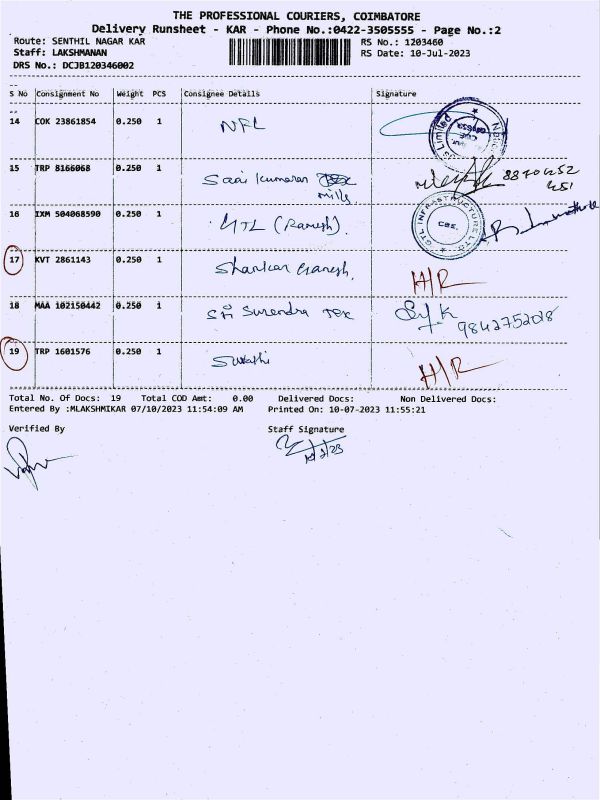 THE PROFESSIONAL COURIERS, COIMBATORE
Delivery Runsheet - KAR - Phone No.:0422-3505555 - Page No.:2
Route: SENTHIL NAGAR KAR RS No.: 1203460
Staff: LAKSHMANAN RS Date: 10-Jul-2023
DRS No.: DCJB120346002
S No Consignment No Weight PCS Consignee Details Signature
14 COK 23861854 0.250 1 NFL
15 TRP 8166068 0.250 1 Saai Kumaran mills 8870452
451
16 IXM 504068590 0.250 1 GTL (Ramesh). GTL INFRASTRUCTURE LTD CBE.
17 KVT 2861143 0.250 1 Shankar Ganesh, H/R
18 MAA 102150442 0.250 1 Sri Surendra Tex 9842752028
19 TRP 1601576 0.250 1 Swathi H/R
Total No. Of Docs: 19 Total COD Amt: 0.00 Delivered Docs: Non Delivered Docs:
Entered By :MLAKSHMIKAR 07/10/2023 11:54:09 AM Printed On: 10-07-2023 11:55:21
Verified By Staff Signature